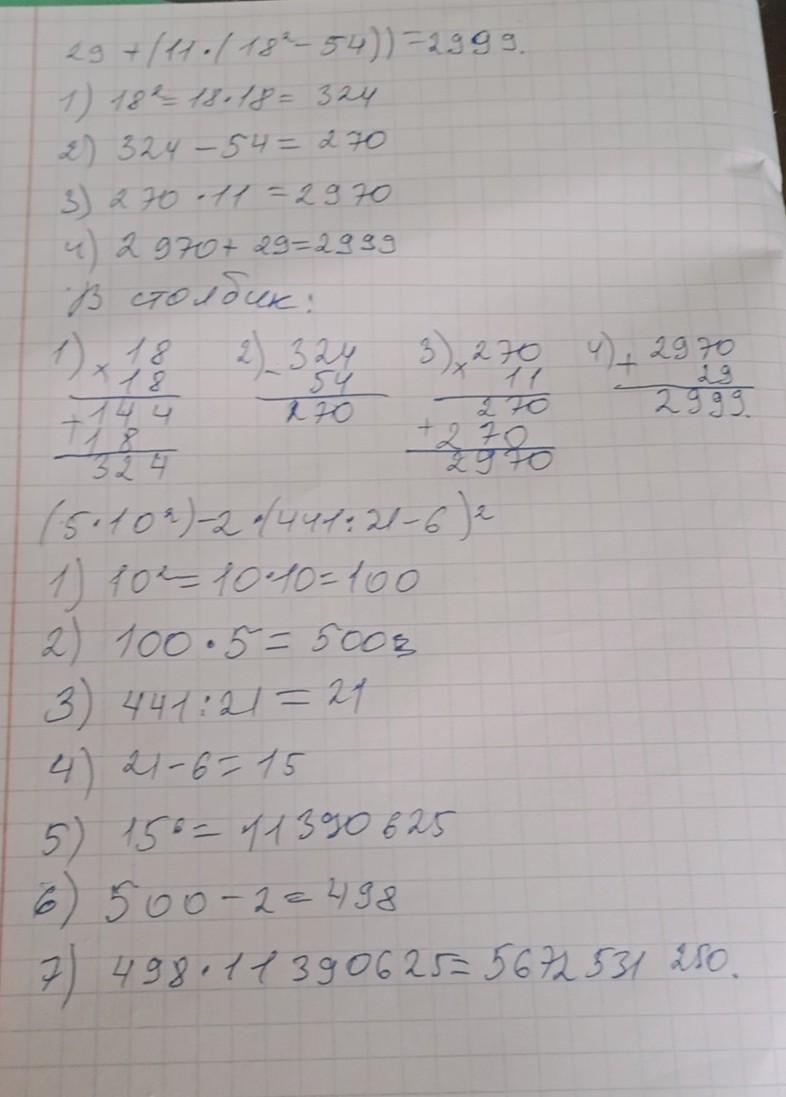 29 + (11 · (18² - 54)) = 2999.
1) 18² = 18 · 18 = 324
2) 324 - 54 = 270
3) 270 · 11 = 2970
4) 2970 + 29 = 2999
В столбик:
1) × 18 2) - 324 3) × 270 4) + 2970
18 54 11 29
+ 144 270 270 2999.
18 + 270
324 2970
(5 · 10²) - 2 · (441 : 21 - 6)²
1) 10² = 10 · 10 = 100
2) 100 · 5 = 500
3) 441 : 21 = 21
4) 21 - 6 = 15
5) 15⁶ = 11390625
6) 500 - 2 = 498
7) 498 · 11390625 = 5672531 250.